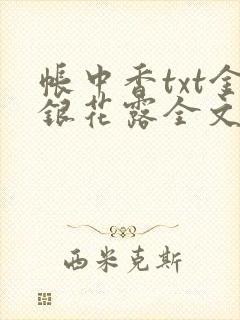 帐中香txt金
银花露全文
西米克斯